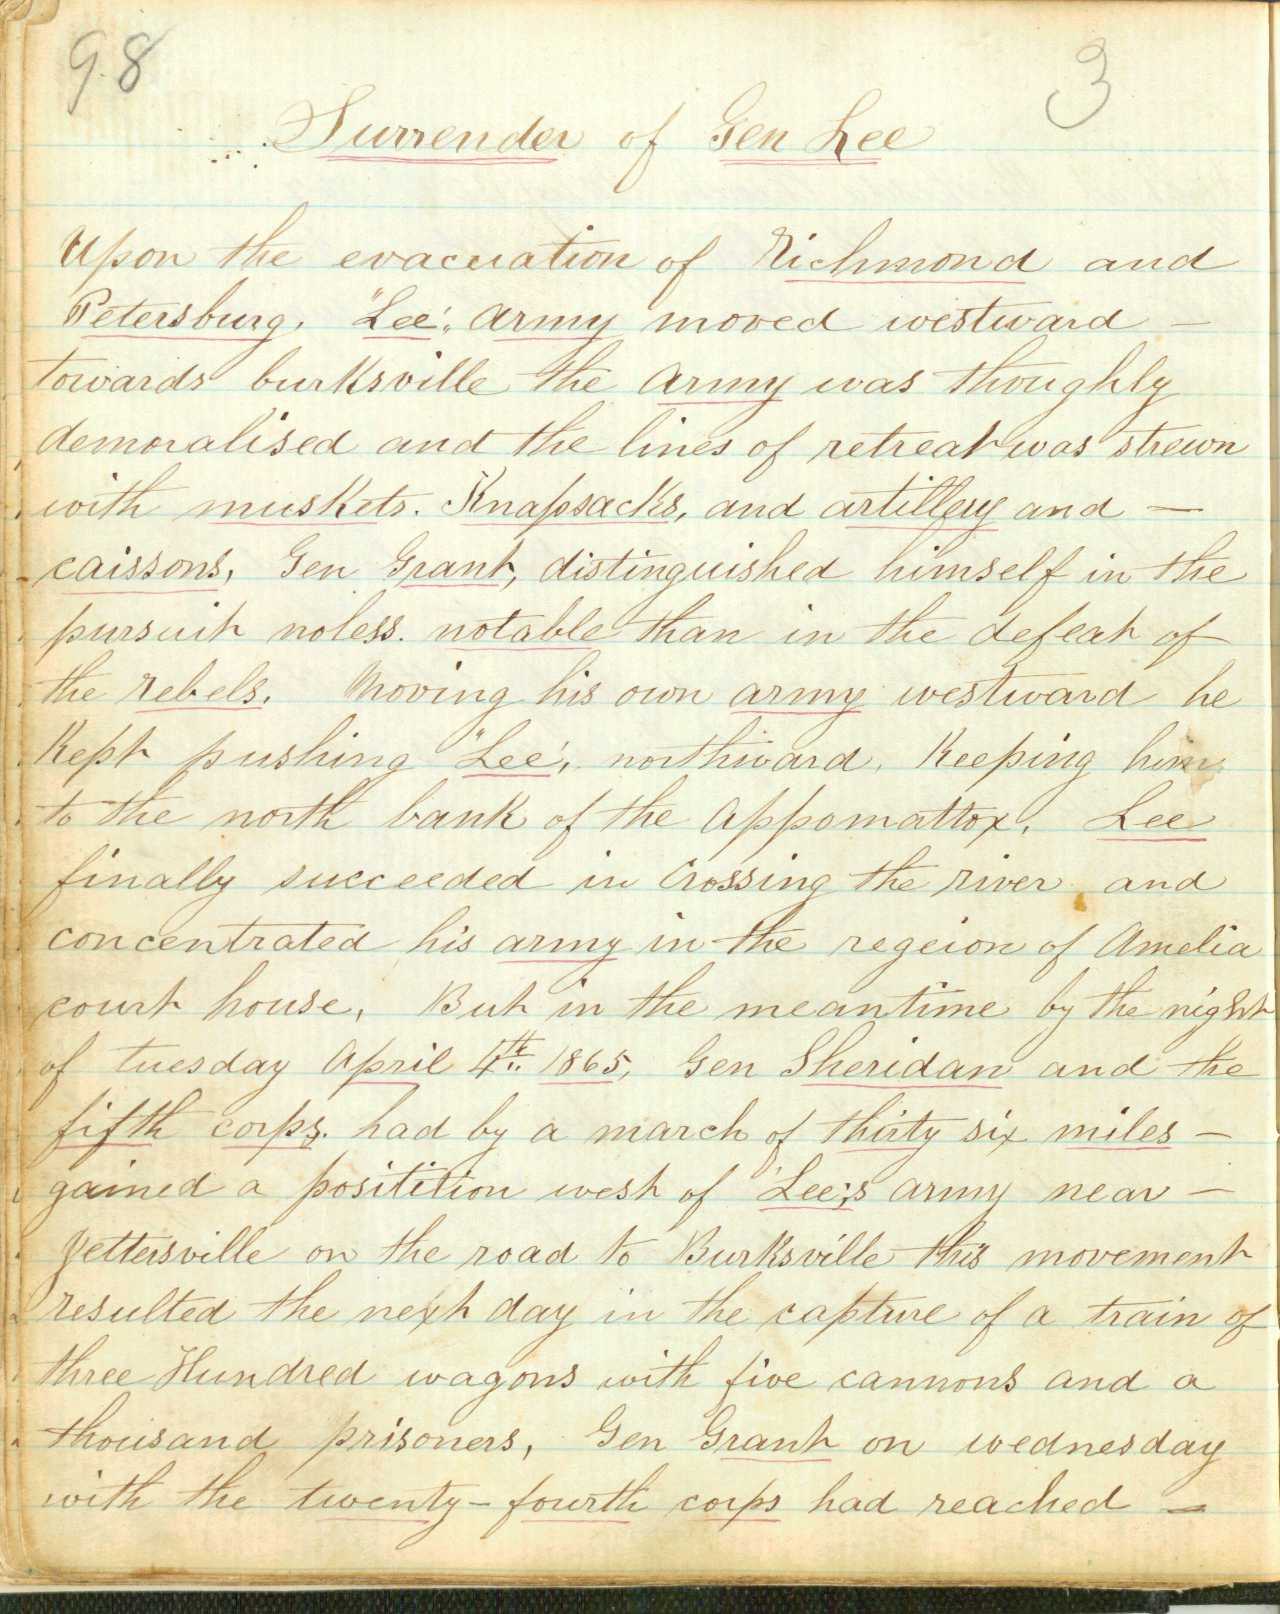 98
3
Surrender of Gen Lee
Upon the evacuation of Richmond and
Petersburg, "Lee", Army moved westward —
towards burksville the Army was thoughly
demoralised and the lines of retreat was strewn
with muskets. Knapsacks, and artillery and —
caissons, Gen Grant, distinguished himself in the
pursuit noless. notable than in the defeat of
the rebels. Moving his own army westward he
Kept pushing "Lee", northward, Keeping him
to the north bank of the Appomattox, Lee
finally succeeded in Crossing the river and
concentrated his army in the regeion of Amelia
court house, But in the meantime by the night
of tuesday April 4th 1865, Gen Sheridan and the
fifth corps. had by a march of thirty six miles —
gained a positition west of Lee's army near —
Jettersville on the road to Burksville this movement
resulted the next day in the capture of a train of
three Hundred wagons with five cannons and a
thousand prisoners, Gen Grant on wednesday
with the twenty-fourth corps had reached —